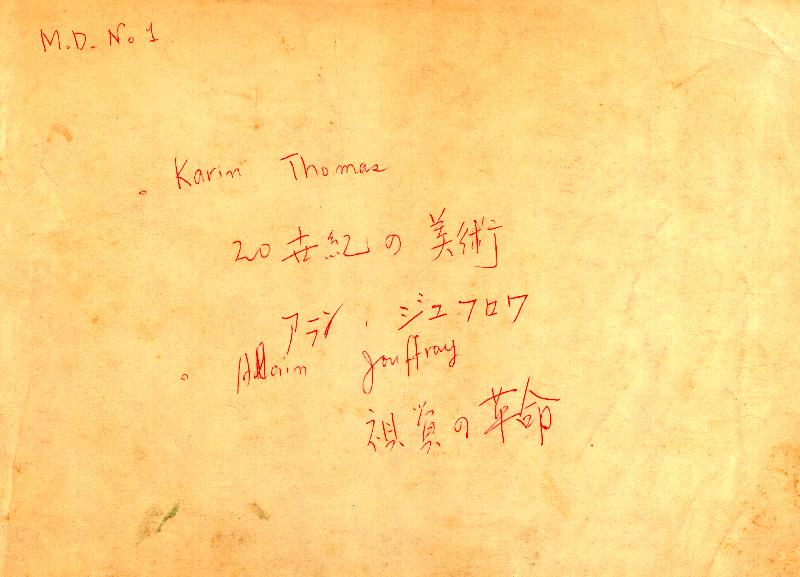 M.D. No 1
。Karin Thomas
20世紀の美術
アラン・ジュフロワ
。Alain Jouffroy
視覚の革命